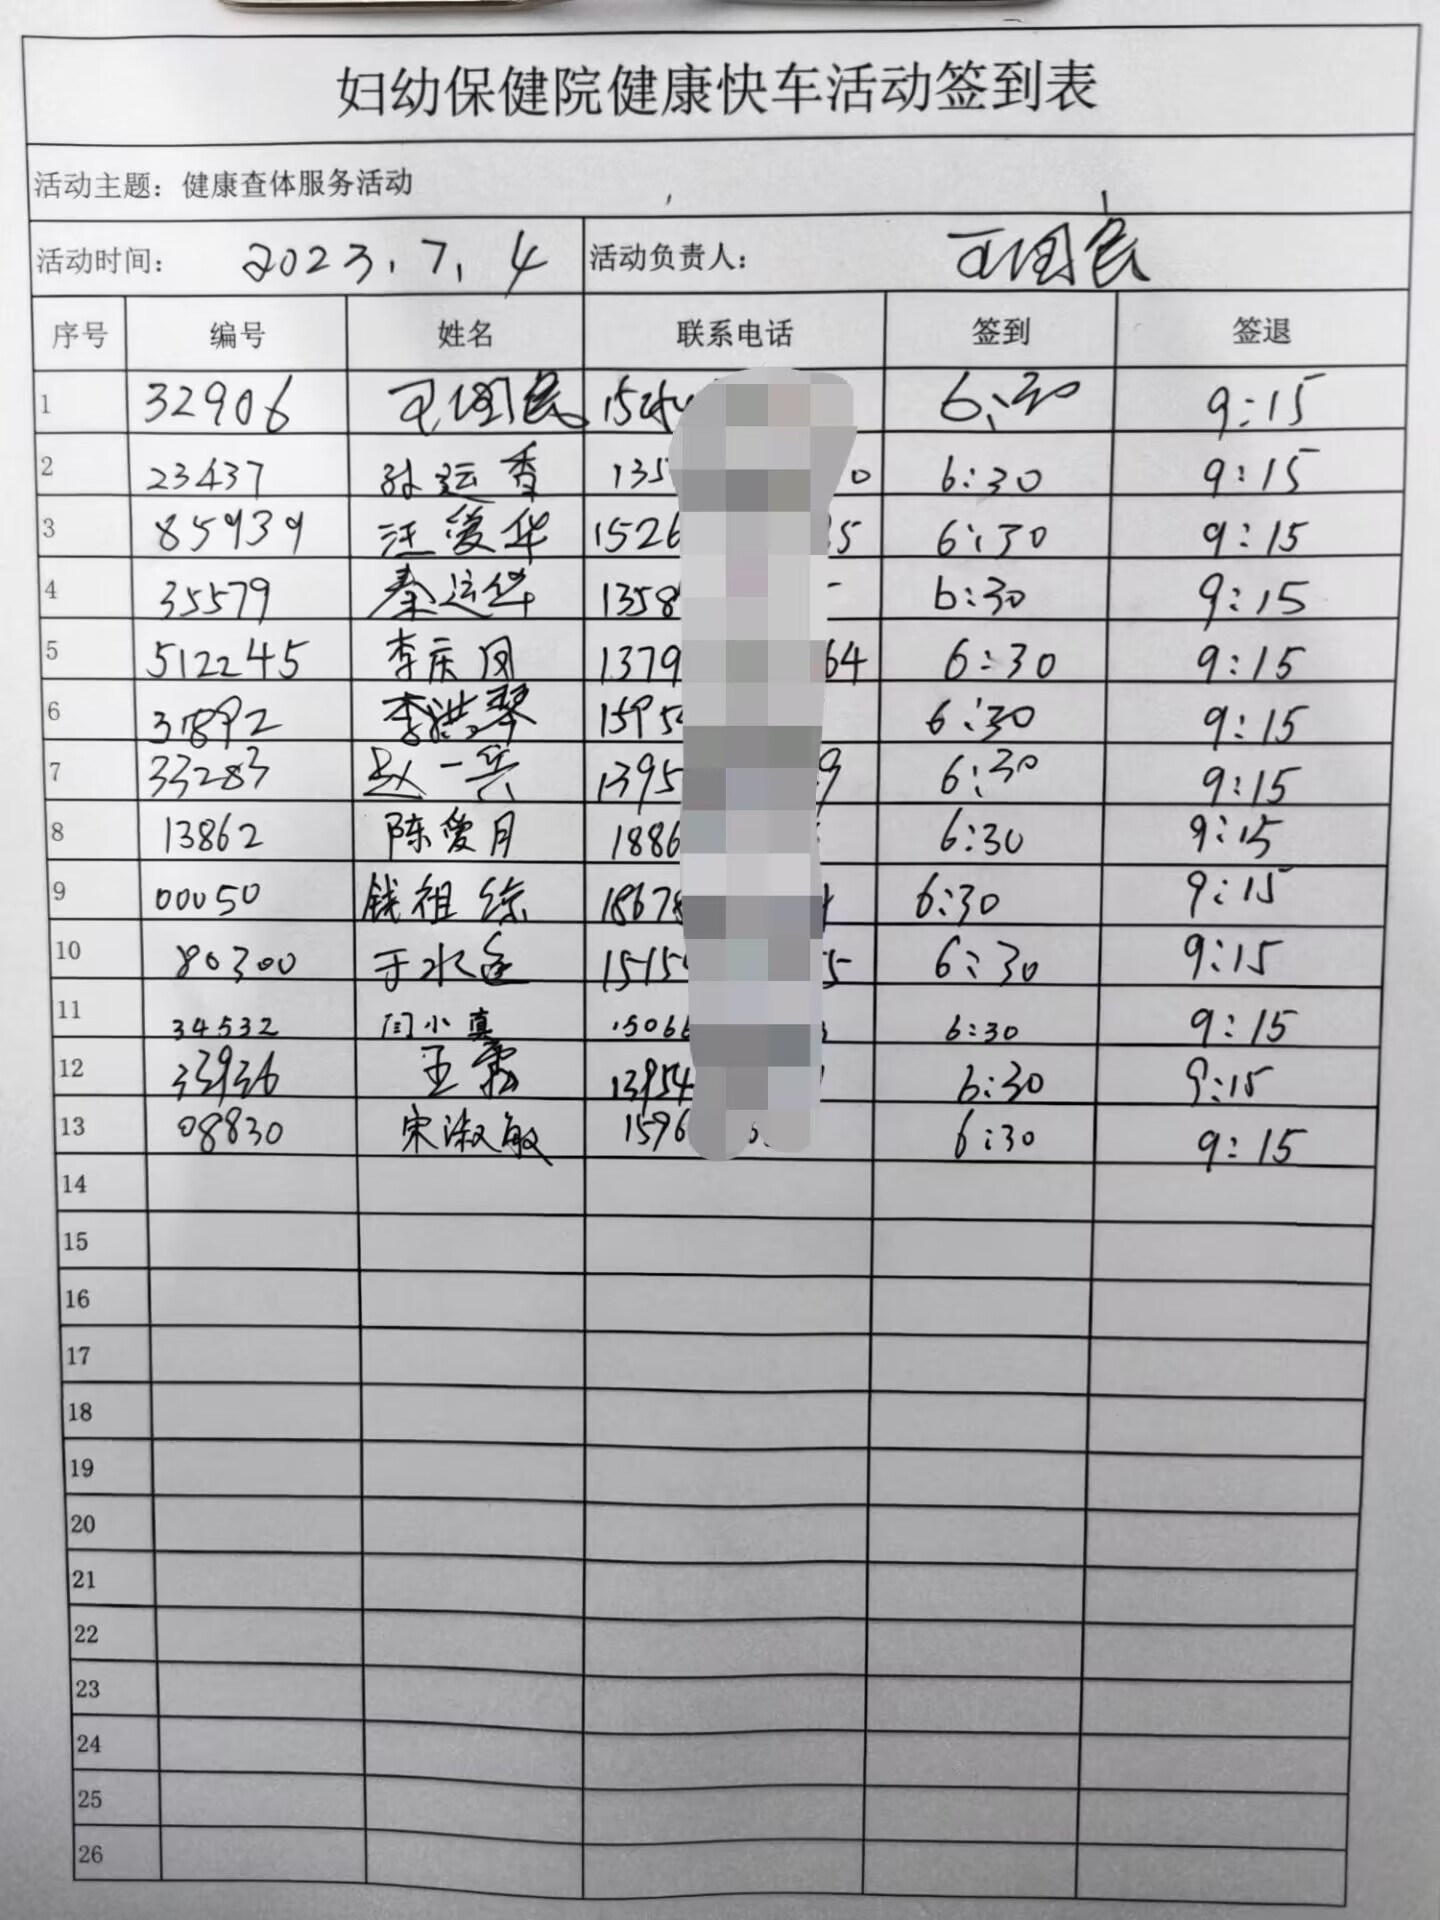 妇幼保健院健康快车活动签到表
活动主题：健康查体服务活动
活动时间： 2023.7.4 活动负责人： 王国民
序号 编号 姓名 联系电话 签到 签退
1 32906 王国民 152 6:30 9:15
2 23437 孙运香 135 0 6:30 9:15
3 85939 汪爱华 1526 5 6:30 9:15
4 35579 秦运华 1358 6:30 9:15
5 512245 李庆凤 1379 64 6:30 9:15
6 31892 李洪琴 1595 6:30 9:15
7 33283 赵一兵 1395 9 6:30 9:15
8 13862 陈爱月 1886 6:30 9:15
9 00050 钱祖综 18678 6:30 9:15
10 80300 于水 1515 5 6:30 9:15
11 34532 闫小真 15066 6:30 9:15
12 33936 王 13954 6:30 9:15
13 08830 宋淑敏 1596 6:30 9:15
14
15
16
17
18
19
20
21
22
23
24
25
26